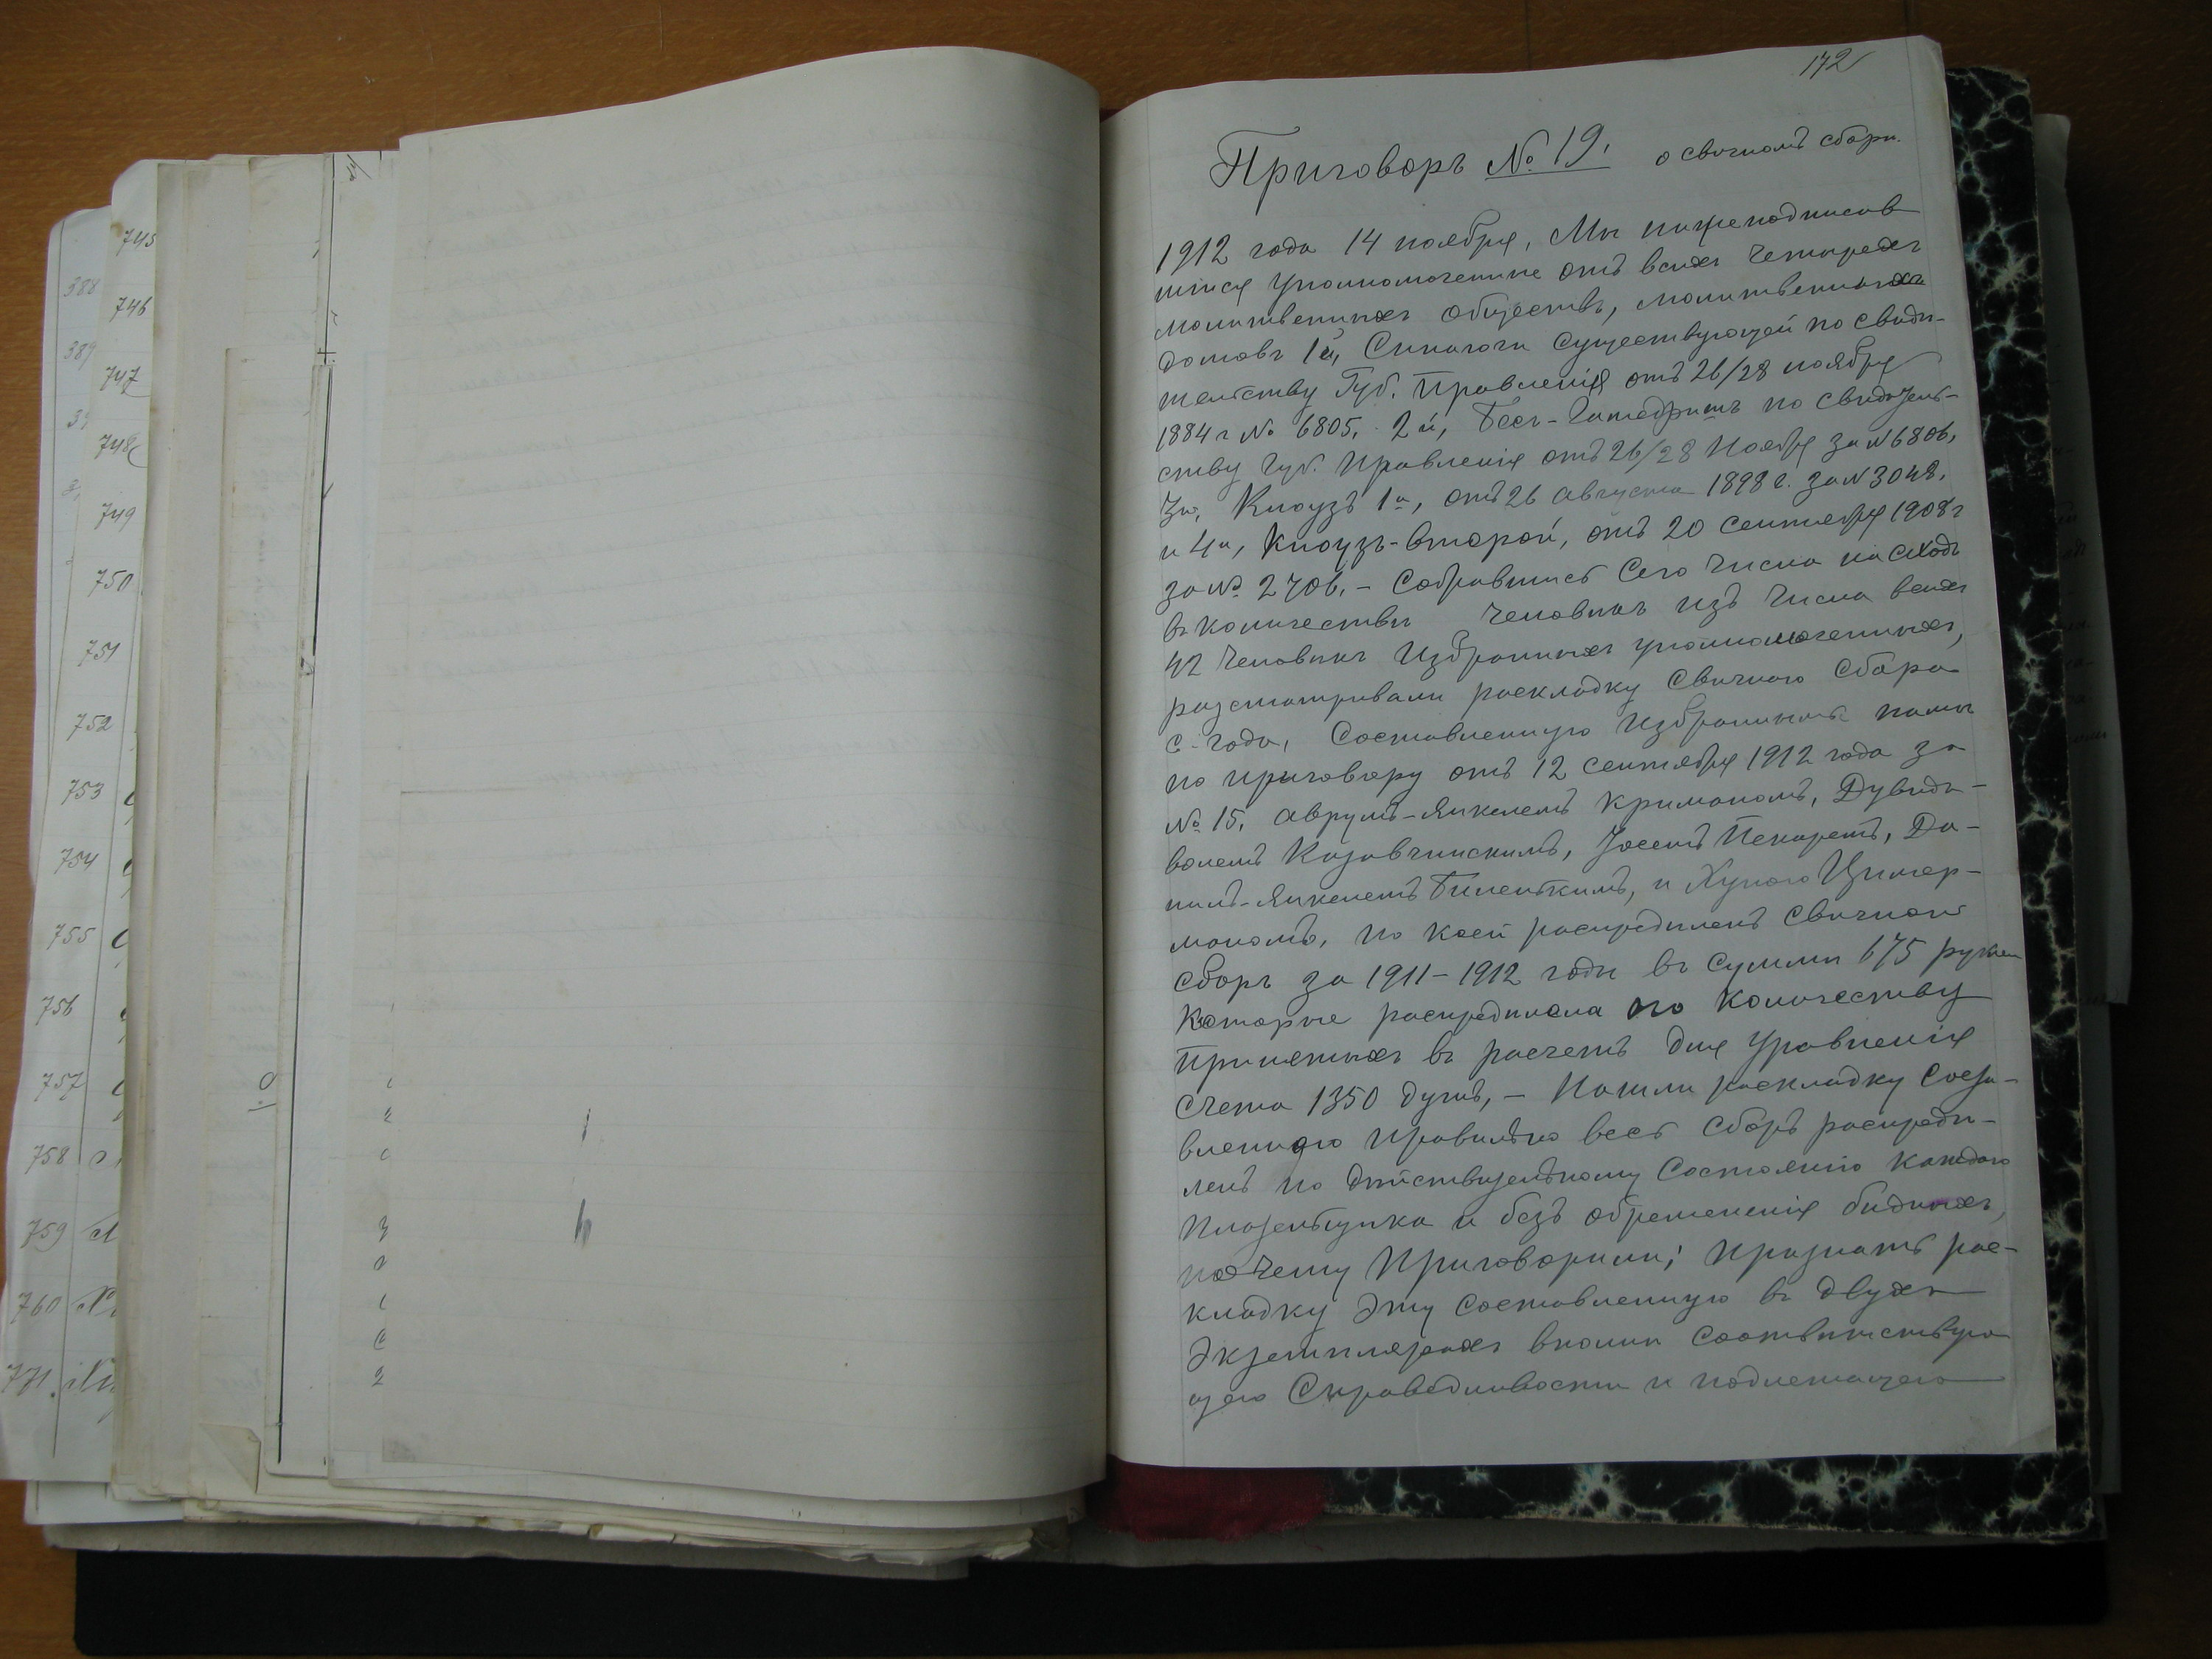 745
388
746
389
747
748
749
750
751
752
753
754
755
756
757
758
759
760
771.
172
Приговоръ № 19. о свѣчномъ сборѣ.
1912 года 14 ноября, Мы нижеподписав
шіися Уполномоченные отъ всѣхъ Четырехъ
молитвенныхъ обществъ, молитвенныхъ
домовъ 1й, Синагоги Существующей по свидѣ-
тельству Губ. Правленія отъ 26/28 ноября
1884 г № 6805, 2й, Бесъ-Гамедришъ по свидѣтель-
ству Губ. Правленія отъ 26/28 Ноября за №6806,
3й, Клоузъ 1й, отъ 26 августа 1898 г. за №3048,
и 4й, Клоузъ-второй, отъ 20 сентября 1908 г
за № 2706, - Собравшись Сего Числа на сходъ
въ количествѣ человѣкъ изъ Числа всѣхъ
42 Человѣкъ Избранныхъ уполномоченныхъ,
разсматривали раскладку Свѣчного Сбора
с-года, Составленную Избранными нами
по приговору отъ 12 сентября 1912 года за
№ 15, Аврумъ-Янкелемъ Криманомъ, Дувидъ-
Волемъ Казавчинскимъ, Іосемъ Пекаремъ, Да-
нилъ-Янкелемъ Биленькимъ, и Хуною Цимер-
маномъ, по коей распредѣленъ Свѣчной
сборъ за 1911-1912 годы въ Суммѣ 675 рублей
Которые распредѣлена по Количеству
Принятыхъ въ расчетъ для Уравненія
Счета 1350 душъ, - Нашли раскладку Соста-
вленную правильно весь Сборъ распредѣ-
ленъ по дѣйствительному Состоянію каждаго
Плательщика и безъ обремененія бѣдныхъ,
почему Приговорили; Признать рас-
кладку Эту Составленную въ двухъ
Экземплярахъ вполнѣ Соотвѣтствую
щею Справедливости и подлежащею